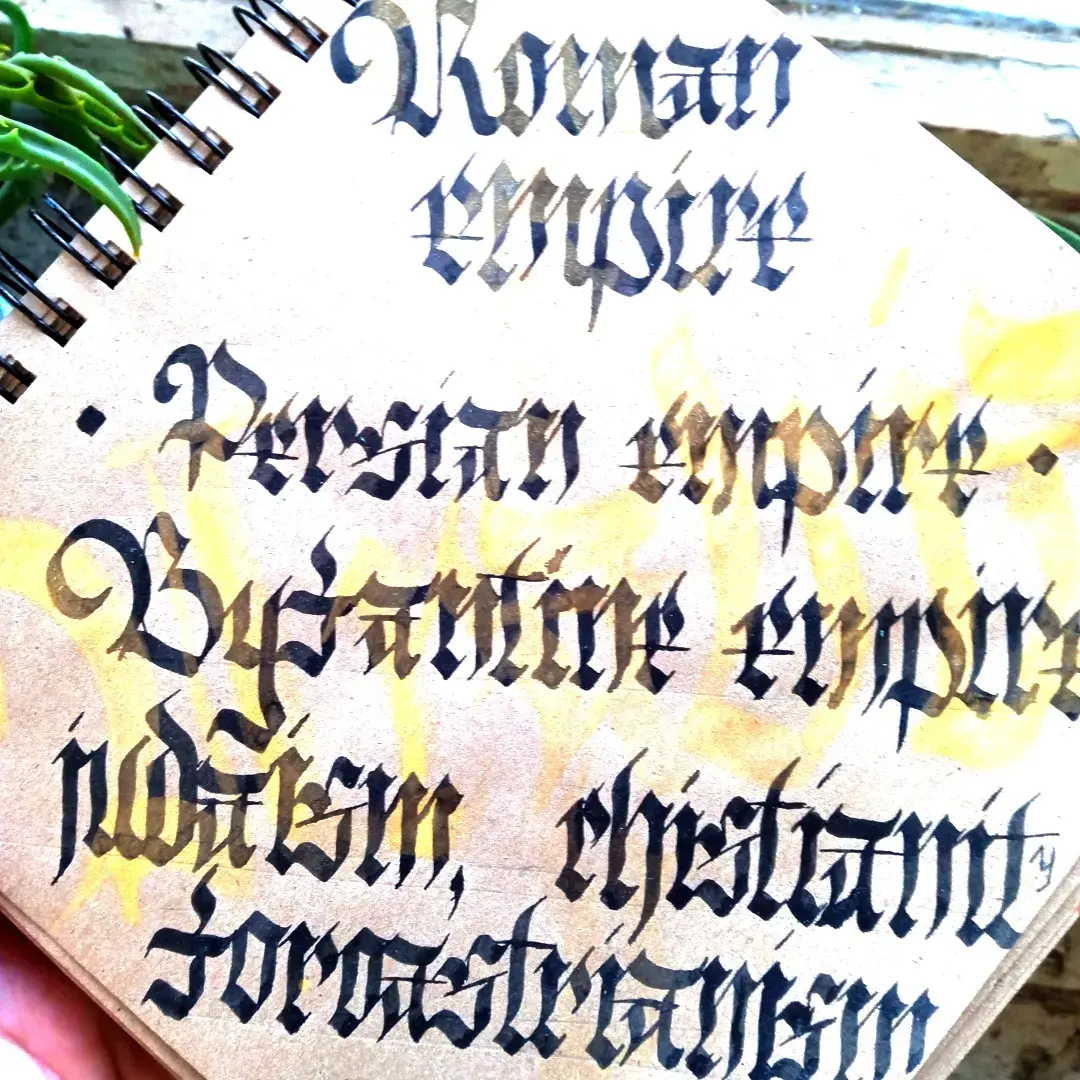 Roman
empire
· Persian empire ·
Byzantine empire
judaism, chistianity
zoroastrianism